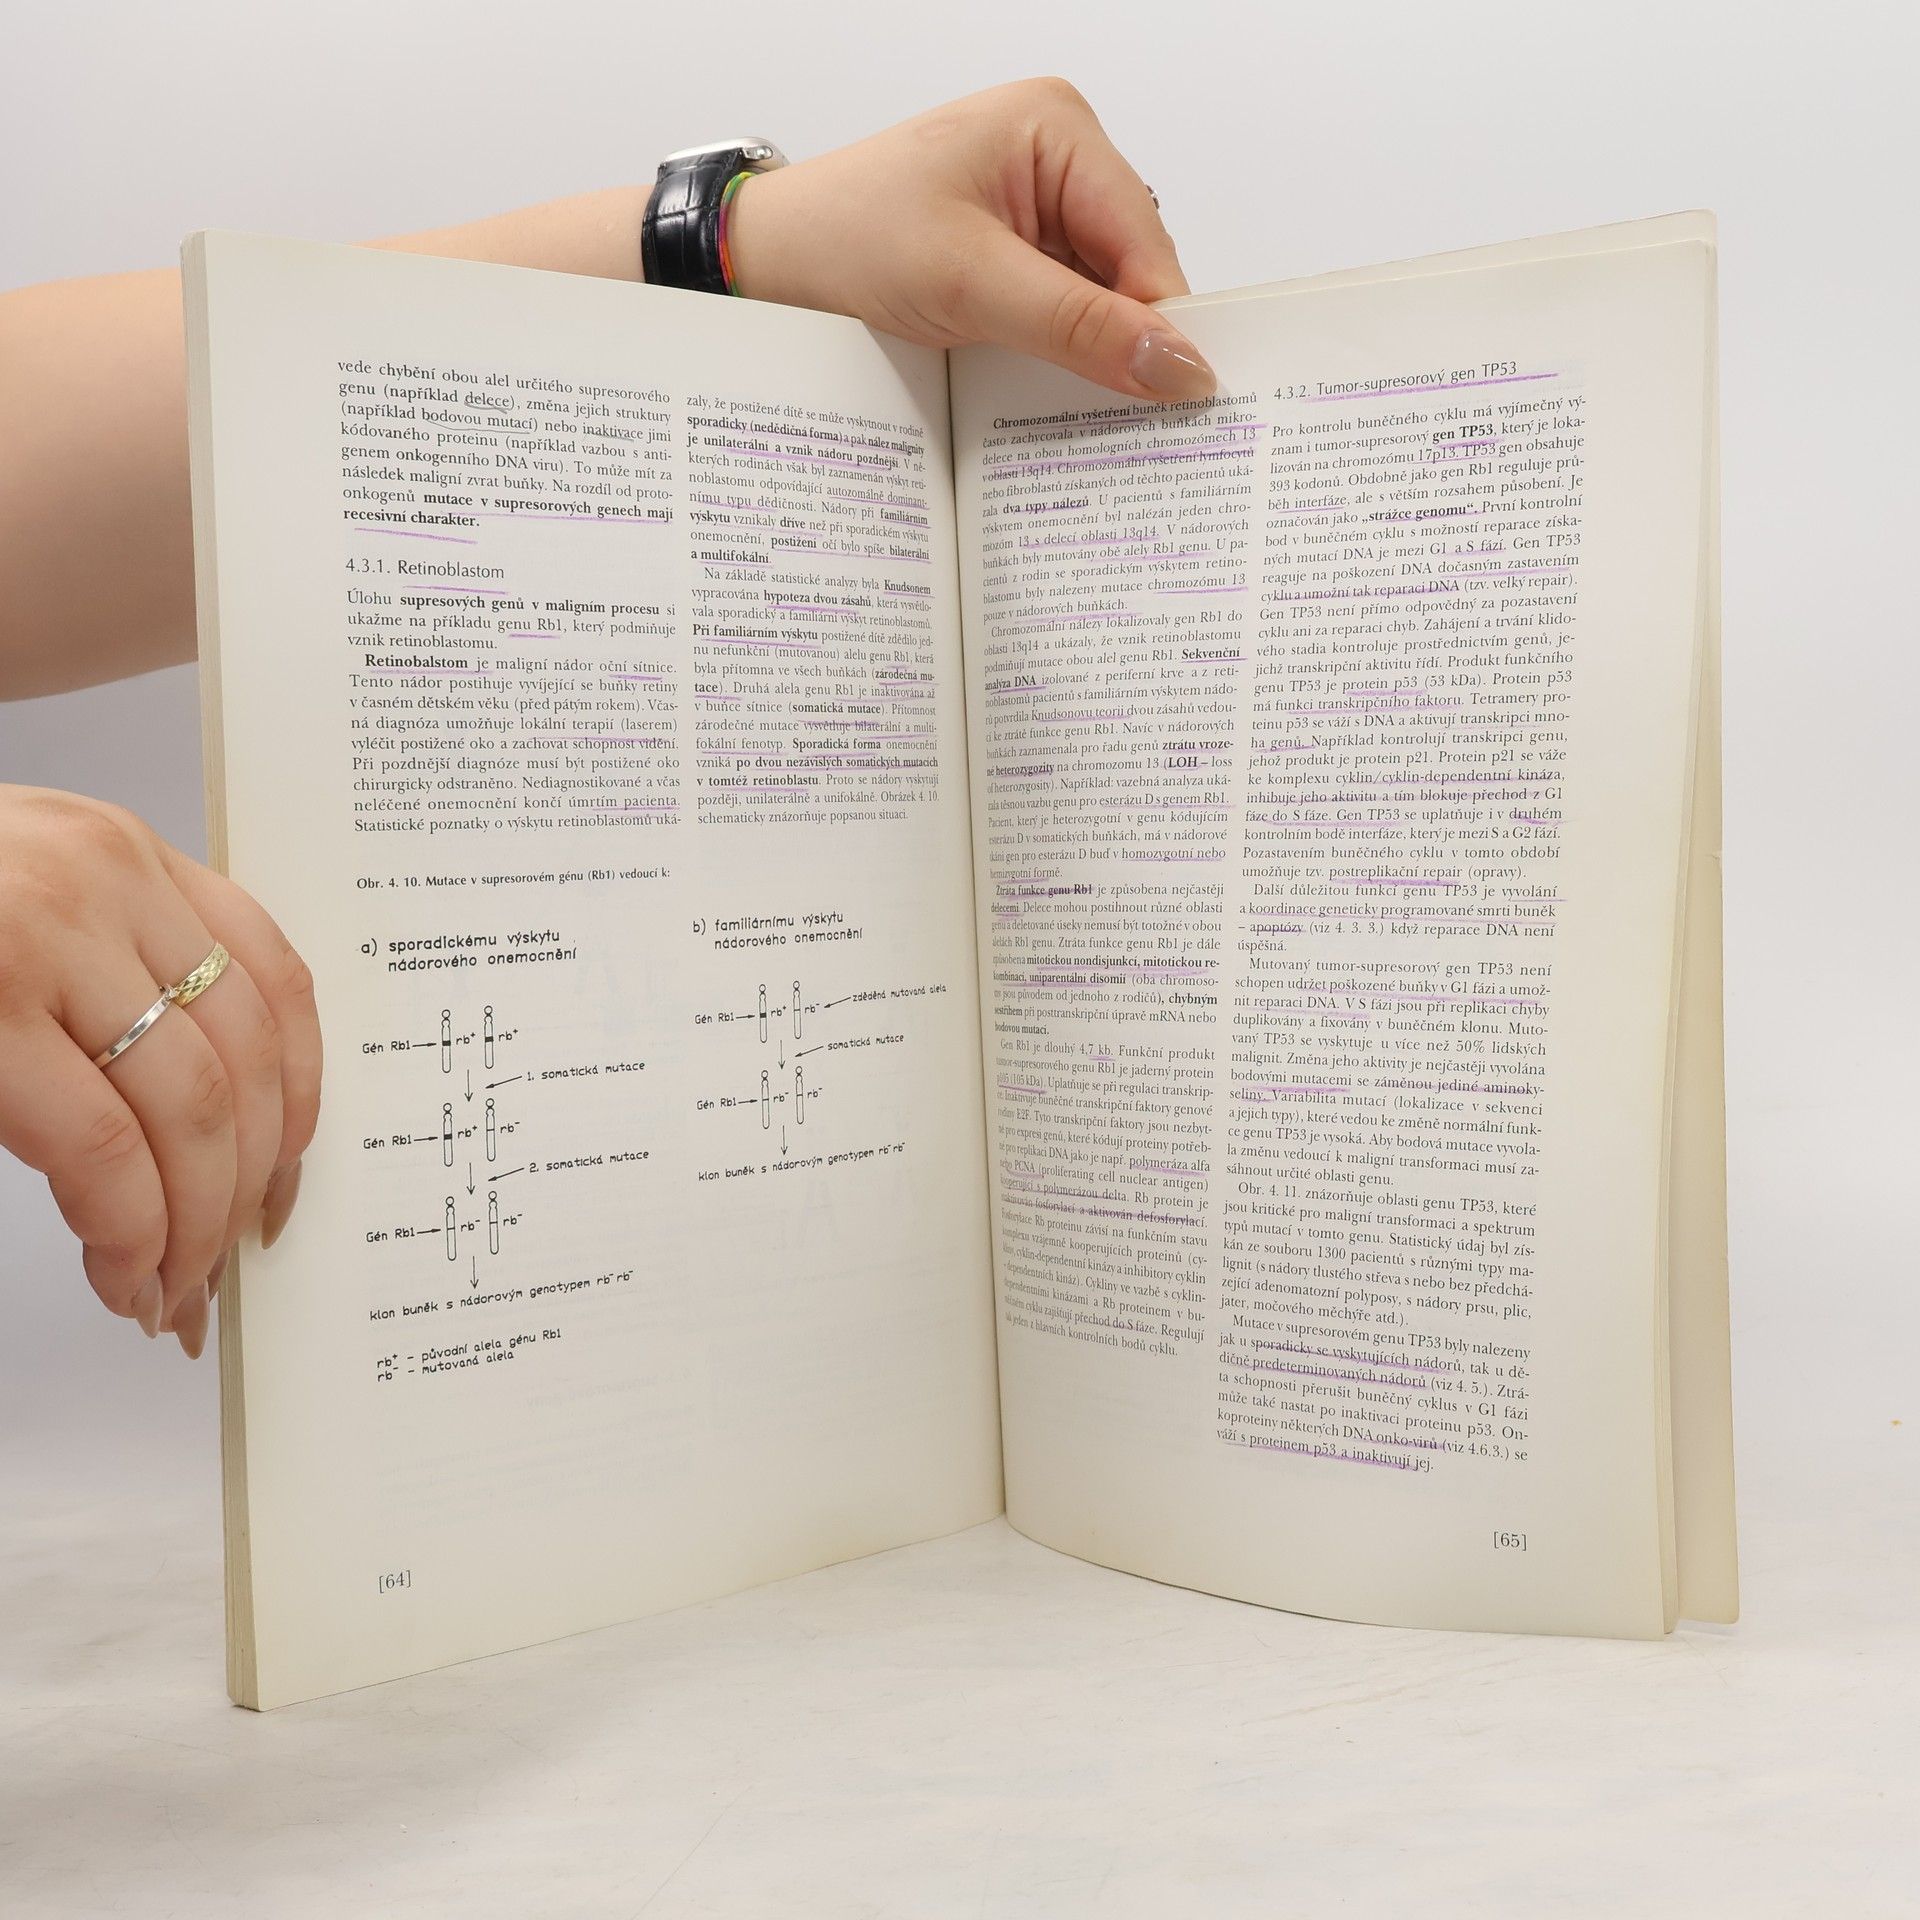 vede chybění obou alel určitého supresorového
genu (například delece), změna jejich struktury
(například bodovou mutací) nebo inaktivace jimi
kódovaného proteinu (například vazbou s anti-
genem onkogenního DNA viru). To může mít za
následek maligní zvrat buňky. Na rozdíl od proto-
onkogenů mutace v supresorových genech mají
recesivní charakter.
4.3.1. Retinoblastom
Úlohu supresových genů v maligním procesu si
ukažme na příkladu genu Rb1, který podmiňuje
vznik retinoblastomu.
Retinobalstom je maligní nádor oční sítnice.
Tento nádor postihuje vyvíjející se buňky retiny
v časném dětském věku (před pátým rokem). Včas-
ná diagnóza umožňuje lokální terapií (laserem)
vyléčit postižené oko a zachovat schopnost vidění.
Při pozdnější diagnóze musí být postižené oko
chirurgicky odstraněno. Nediagnostikované a včas
neléčené onemocnění končí úmrtím pacienta.
Statistické poznatky o výskytu retinoblastomů uká-
zaly, že postižené dítě se může vyskytnout v rodině
sporadicky (nedědičná forma) a pak nález malignity
je unilaterální a vznik nádoru pozdnější. V ně-
kterých rodinách však byl zaznamenán výskyt reti-
noblastomu odpovídající autozomálně dominant-
nímu typu dědičnosti. Nádory při familiárním
výskytu vznikaly dříve než při sporadickém výskytu
onemocnění, postižení očí bylo spíše bilaterální
a multifokální.
Na základě statistické analyzy byla Knudsonem
vypracována hypoteza dvou zásahů, která vysvětlo-
vala sporadický a familiární výskyt retinoblastomů.
Při familiárním výskytu postižené dítě zdědilo jed-
nu nefunkční (mutovanou) alelu genu Rb1, která
byla přítomna ve všech buňkách (zárodečná mu-
tace). Druhá alela genu Rb1 je inaktivována až
v buňce sítnice (somatická mutace). Přítomnost
zárodečné mutace vysvětluje bilaterální a multi-
fokální fenotyp. Sporadická forma onemocnění
vzniká po dvou nezávislých somatických mutacích
v tomtéž retinoblastu. Proto se nádory vyskytují
později, unilaterálně a unifokálně. Obrázek 4. 10.
schematicky znázorňuje popsanou situaci.
Obr. 4. 10. Mutace v supresorovém génu (Rb1) vedoucí k:
a) sporadickému výskytu
nádorového onemocnění
Gén Rb1 rb⁺ rb⁺
1. somatická mutace
Gén Rb1 rb⁺ rb⁻
2. somatická mutace
Gén Rb1 rb⁻ rb⁻
klon buněk s nádorovým genotypem rb⁻ rb⁻
rb⁺ – původní alela génu Rb1
rb⁻ – mutovaná alela
b) familiárnímu výskytu
nádorového onemocnění
Gén Rb1 rb⁺ rb⁻ zděděná mutovaná alela
somatická mutace
Gén Rb1 rb⁻ rb⁻
klon buněk s nádorovým genotypem rb⁻ rb⁻
[64]
Chromozomální vyšetření buněk retinoblastomů
často zachycovala v nádorových buňkách mikro-
delece na obou homologních chromozómech 13
v oblasti 13q14. Chromozomální vyšetření lymfocytů
nebo fibroblastů získaných od těchto pacientů uká-
zala dva typy nálezů. U pacientů s familiárním
výskytem onemocnění byl nalézán jeden chro-
mozóm 13 s delecí oblasti 13q14. V nádorových
buňkách byly mutovány obě alely Rb1 genu. U pa-
cientů z rodin se sporadickým výskytem retino-
blastomu byly nalezeny mutace chromozómu 13
pouze v nádorových buňkách.
Chromozomální nálezy lokalizovaly gen Rb1 do
oblasti 13q14 a ukázaly, že vznik retinoblastomu
podmiňují mutace obou alel genu Rb1. Sekvenční
analýza DNA izolované z periferní krve a z reti-
noblastomů pacientů s familiárním výskytem nádo-
rů potvrdila Knudsonovu teorii dvou zásahů vedou-
cí ke ztrátě funkce genu Rb1. Navíc v nádorových
buňkách zaznamenala pro řadu genů ztrátu vroze-
né heterozygozity na chromozomu 13 (LOH – loss
of heterozygosity). Například: vazebná analýza uká-
zala těsnou vazbu genu pro esterázu D s genem Rb1.
Pacient, který je heterozygotní v genu kódujícím
esterázu D v somatických buňkách, má v nádorové
tkáni gen pro esterázu D buď v homozygotní nebo
hemizygotní formě.
Ztráta funkce genu Rb1 je způsobena nejčastěji
delecemi. Delece mohou postihnout různé oblasti
genu a deletované úseky nemusí být totožné v obou
alelách Rb1 genu. Ztráta funkce genu Rb1 je dále
způsobena mitotickou nondisjunkcí, mitotickou re-
kombinací, uniparentální disomií (oba chromoso-
my jsou původem od jednoho z rodičů), chybným
sestřihem při posttranskripční úpravě mRNA nebo
bodovou mutací.
Gen Rb1 je dlouhý 4,7 kb. Funkční produkt
tumor-supresorového genu Rb1 je jaderný protein
p105 (105 kDa). Uplatňuje se při regulaci transkrip-
ce. Inaktivuje buněčné transkripční faktory genové
rodiny E2F. Tyto transkripční faktory jsou nezbyt-
né pro expresi genů, které kódují proteiny potřeb-
né pro replikaci DNA jako je např. polymeráza alfa
nebo PCNA (proliferating cell nuclear antigen)
kooperující s polymerázou delta. Rb protein je
inaktivován fosforylací a aktivován defosforylací.
Fosforylace Rb proteinu závisí na funkčním stavu
komplexu vzájemně kooperujících proteinů (cy-
kliny, cyklin-dependentní kinázy a inhibitory cyklin
- dependentních kináz). Cykliny ve vazbě s cyklin-
dependentními kinázami a Rb proteinem v bu-
něčném cyklu zajišťují přechod do S fáze. Regulují
tak jeden z hlavních kontrolních bodů cyklu.
4.3.2. Tumor-supresorový gen TP53
Pro kontrolu buněčného cyklu má vyjímečný vý-
znam i tumor-supresorový gen TP53, který je loka-
lizován na chromozómu 17p13. TP53 gen obsahuje
393 kodonů. Obdobně jako gen Rb1 reguluje prů-
běh interfáze, ale s větším rozsahem působení. Je
označován jako „strážce genomu“. První kontrolní
bod v buněčném cyklu s možností reparace získa-
ných mutací DNA je mezi G1 a S fází. Gen TP53
reaguje na poškození DNA dočasným zastavením
cyklu a umožní tak reparaci DNA (tzv. velký repair).
Gen TP53 není přímo odpovědný za pozastavení
cyklu ani za reparaci chyb. Zahájení a trvání klido-
vého stadia kontroluje prostřednictvím genů, je-
jichž transkripční aktivitu řídí. Produkt funkčního
genu TP53 je protein p53 (53 kDa). Protein p53
má funkci transkripčního faktoru. Tetramery pro-
teinu p53 se váží s DNA a aktivují transkripci mno-
ha genů. Například kontrolují transkripci genu,
jehož produkt je protein p21. Protein p21 se váže
ke komplexu cyklin/cyklin-dependentní kináza,
inhibuje jeho aktivitu a tím blokuje přechod z G1
fáze do S fáze. Gen TP53 se uplatňuje i v druhém
kontrolním bodě interfáze, který je mezi S a G2 fází.
Pozastavením buněčného cyklu v tomto období
umožňuje tzv. postreplikační repair (opravy).
Další důležitou funkcí genu TP53 je vyvolání
a koordinace geneticky programované smrti buněk
– apoptózy (viz 4. 3. 3.) když reparace DNA není
úspěšná.
Mutovaný tumor-supresorový gen TP53 není
schopen udržet poškozené buňky v G1 fázi a umož-
nit reparaci DNA. V S fázi jsou při replikaci chyby
duplikovány a fixovány v buněčném klonu. Muto-
vaný TP53 se vyskytuje u více než 50% lidských
malignit. Změna jeho aktivity je nejčastěji vyvolána
bodovými mutacemi se záměnou jediné aminoky-
seliny. Variabilita mutací (lokalizace v sekvenci
a jejich typy), které vedou ke změně normální funk-
ce genu TP53 je vysoká. Aby bodová mutace vyvola-
la změnu vedoucí k maligní transformaci musí za-
sáhnout určité oblasti genu.
Obr. 4. 11. znázorňuje oblasti genu TP53, které
jsou kritické pro maligní transformaci a spektrum
typů mutací v tomto genu. Statistický údaj byl zís-
kán ze souboru 1300 pacientů s různými typy ma-
lignit (s nádory tlustého střeva s nebo bez předchá-
zející adenomatozní polyposy, s nádory prsu, plic,
jater, močového měchýře atd.).
Mutace v supresorovém genu TP53 byly nalezeny
jak u sporadicky se vyskytujících nádorů, tak u dě-
dičně predeterminovaných nádorů (viz 4. 5.). Ztrá-
ta schopnosti přerušit buněčný cyklus v G1 fázi
může také nastat po inaktivaci proteinu p53. On-
koproteiny některých DNA onko-virů (viz 4.6.3.) se
váží s proteinem p53 a inaktivují jej.
[65]